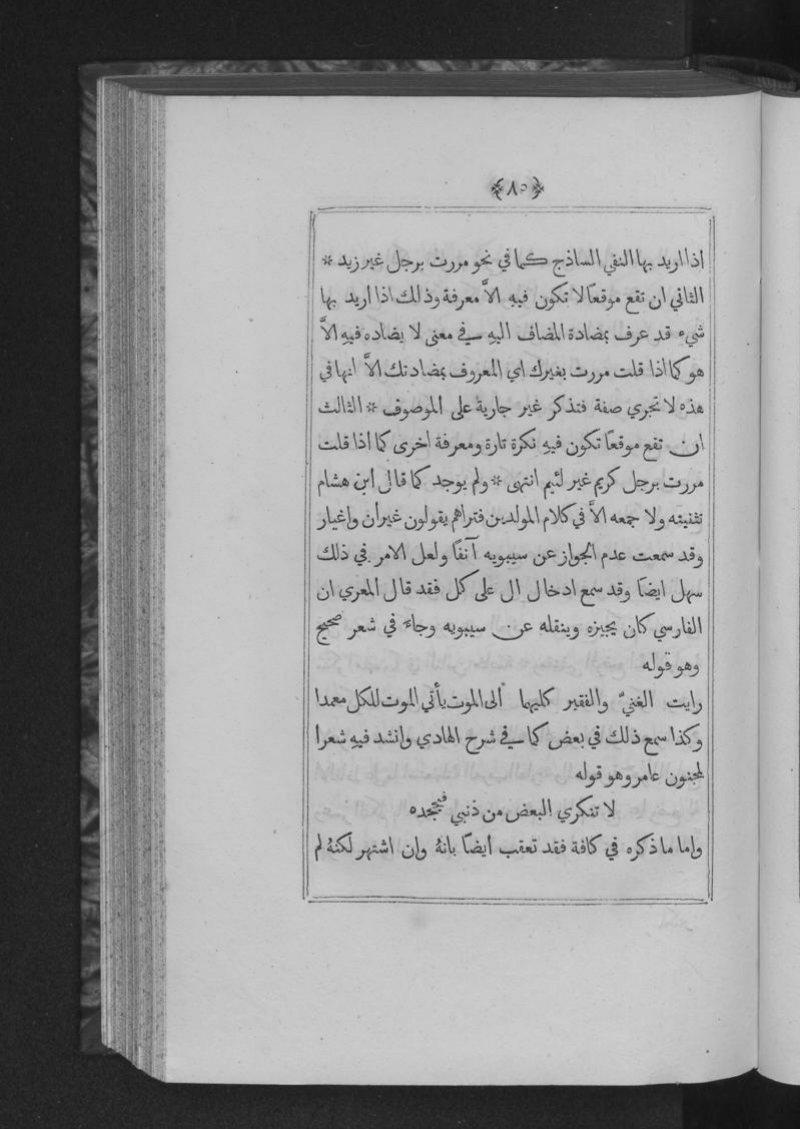 ﴿٨٥﴾
اذا اريد بها النفي الساذج كما في نحو مررت برجل غير زيد *
الثاني ان تقع موقعًا لا تكون فيهِ الاَّ معرفة وذلك اذا اريد بها
شيء قد عرف بمضادة المضاف اليهِ في معنى لا يضاده فيهِ الاَّ
هو كما اذا قلت مررت بغيرك اي المعروف بمضادتك الاَّ انها في
هذه لا تجري صفة فتذكر غير جارية على الموصوف * الثالث
ان تقع موقعًا تكون فيهِ نكرة تارة ومعرفة اخرى كما اذا قلت
مررت برجل كريم غير لئيم انتهى * ولم يوجد كما قال ابن هشام
تثنيته ولا جمعه الاَّ في كلام المولدين فتراهم يقولون غيران واغيار
وقد سمعت عدم الجواز عن سيبويه آنفًا ولعل الامر في ذلك
سهل ايضًا وقد سمع ادخال ال على كل فقد قال المعري ان
الفارسي كان يجيزه وينقله عن سيبويه وجاء في شعر صحيح
وهو قوله
رايت الغنيّ والفقير كليهما الى الموت يأتي الموت للكل معمدا
وكذا سمع ذلك في بعض كما في شرح الهادي وانشد فيهِ شعرا
لمجنون عامر وهو قوله
لا تنكري البعض من ذنبي فتجحده
واما ما ذكره في كافة فقد تعقب أيضًا بانهُ وان اشتهر لكنهُ لم